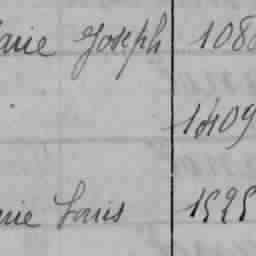 arie Joseph 108
1409
arie Louis 1525